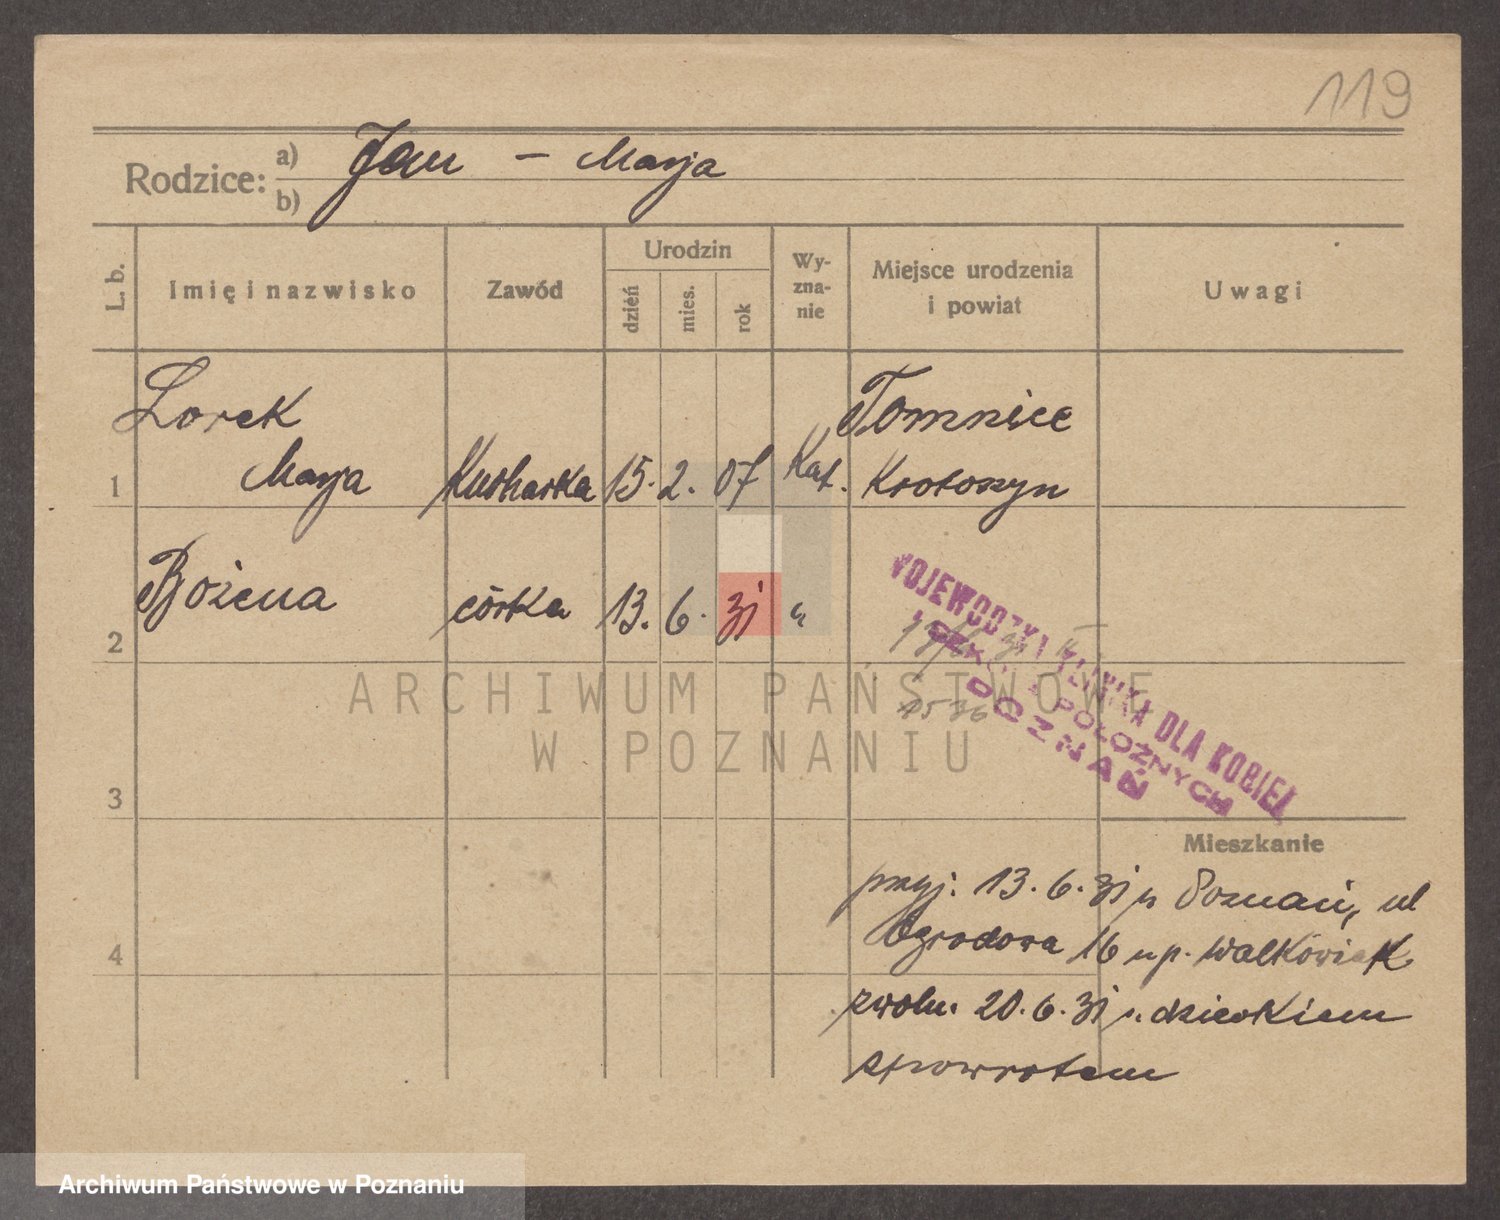 119
Rodzice: a) Jan – Marja
b)
L. b. Imię i nazwisko Zawód Urodzin dzień mies. rok Wy-zna-nie Miejsce urodzenia i powiat Uwagi
Lorek Tomnice
1 Marja Kucharka 15. 2. 07 Kat. Krotoszyn
2 Bożena córka 13. 6. 31 "
WOJEWÓDZKA KLINIKA DLA KOBIET
I SZKOŁA POŁOŻNYCH
POZNAŃ
ARCHIWUM PAŃSTWOWE
W POZNANIU
3
Mieszkanie
przyj. 13. 6. 31 z Poznań, ul
4 Ogrodowa 16 u p. Walkowiak
zwoln. 20. 6. 31 z dzieckiem
spowrotem
Archiwum Państwowe w Poznaniu